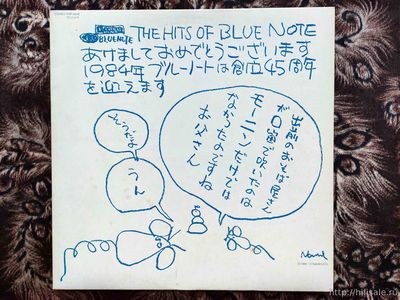 BLUE NOTE
THE HITS OF BLUE NOTE
あけましておめでとうございます
1984年ブルーノートは創立45周年
を迎えます
出前のおそば屋さん
が口笛で吹いたのは
モーニンだけでは
なかったのですね
お父さん
そうだよ
うん
http://hifisale.ru